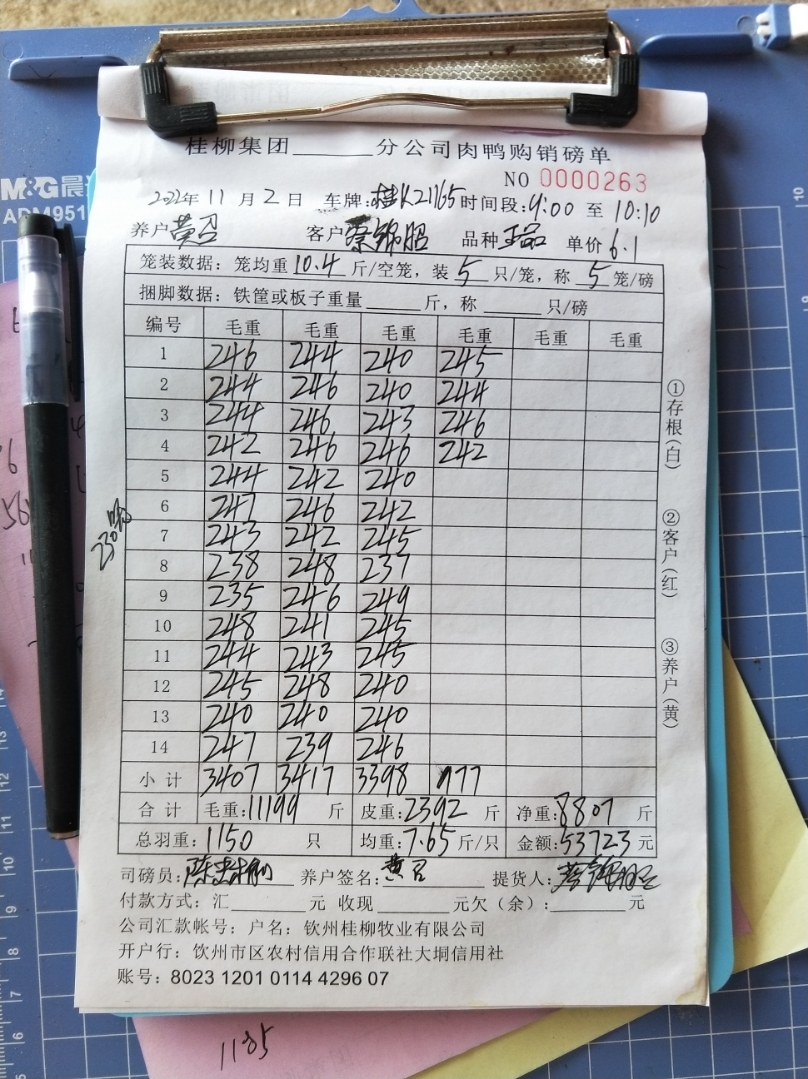 M&G 晨
ADM951
桂柳集团______分公司肉鸭购销磅单
NO 0000263
2022年11月2日 车牌:桂K21165 时间段:9:00 至 10:10
养户 黄召 客户 蔡锦昭 品种 正品 单价 6.1
笼装数据: 笼均重 10.4 斤/空笼, 装 5 只/笼, 称 5 笼/磅
捆脚数据: 铁筐或板子重量______斤, 称______只/磅
编号 毛重 毛重 毛重 毛重 毛重 毛重
1 246 244 240 245
2 244 246 240 244
3 244 246 243 246
4 242 246 246 242
5 244 242 240
6 247 246 242
7 243 242 245
8 238 248 237
9 235 246 249
10 248 241 245
11 244 243 245
12 245 248 240
13 240 240 240
14 247 239 246
小计 3407 3417 3398 977
合计 毛重:11199 斤 皮重:2392 斤 净重:8807 斤
总羽重:1150 只 均重:7.65 斤/只 金额:53723 元
司磅员: 养户签名:黄召 提货人:蔡锦昭
付款方式: 汇______元 收现______元欠(余):______元
公司汇款帐号: 户名: 钦州桂柳牧业有限公司
开户行: 钦州市区农村信用合作联社大垌信用社
账号: 8023 1201 0114 4296 07
①存根(白)
②客户(红)
③养户(黄)
230
1185